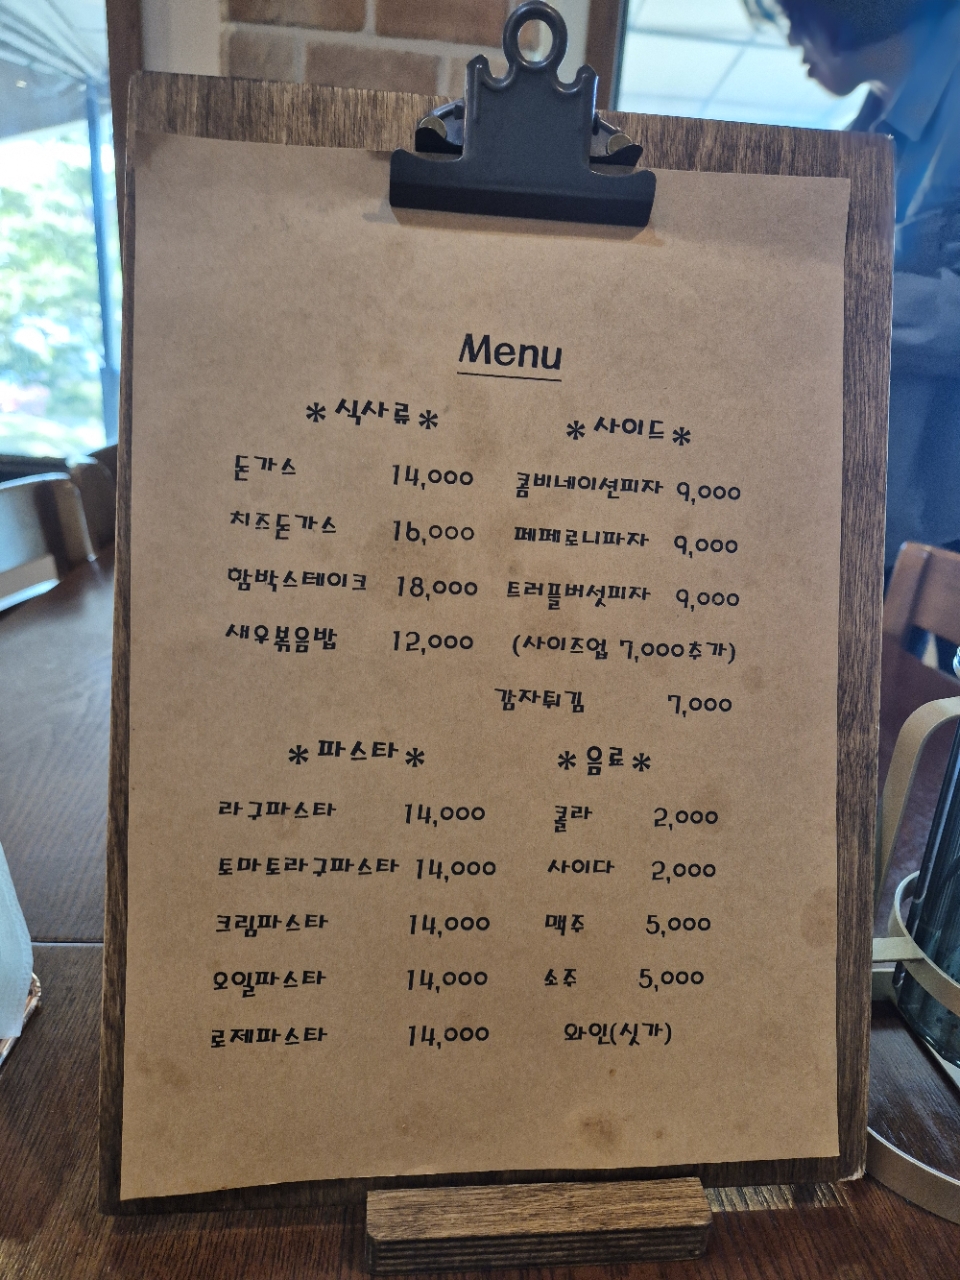 Menu
*식사류*
돈가스 14,000
치즈돈가스 16,000
함박스테이크 18,000
새우볶음밥 12,000
*사이드*
콤비네이션피자 9,000
페페로니파자 9,000
트러플버섯피자 9,000
(사이즈업 7,000추가)
감자튀김 7,000
*파스타*
라구파스타 14,000
토마토라구파스타 14,000
크림파스타 14,000
오일파스타 14,000
로제파스타 14,000
*음료*
콜라 2,000
사이다 2,000
맥주 5,000
소주 5,000
와인(싯가)